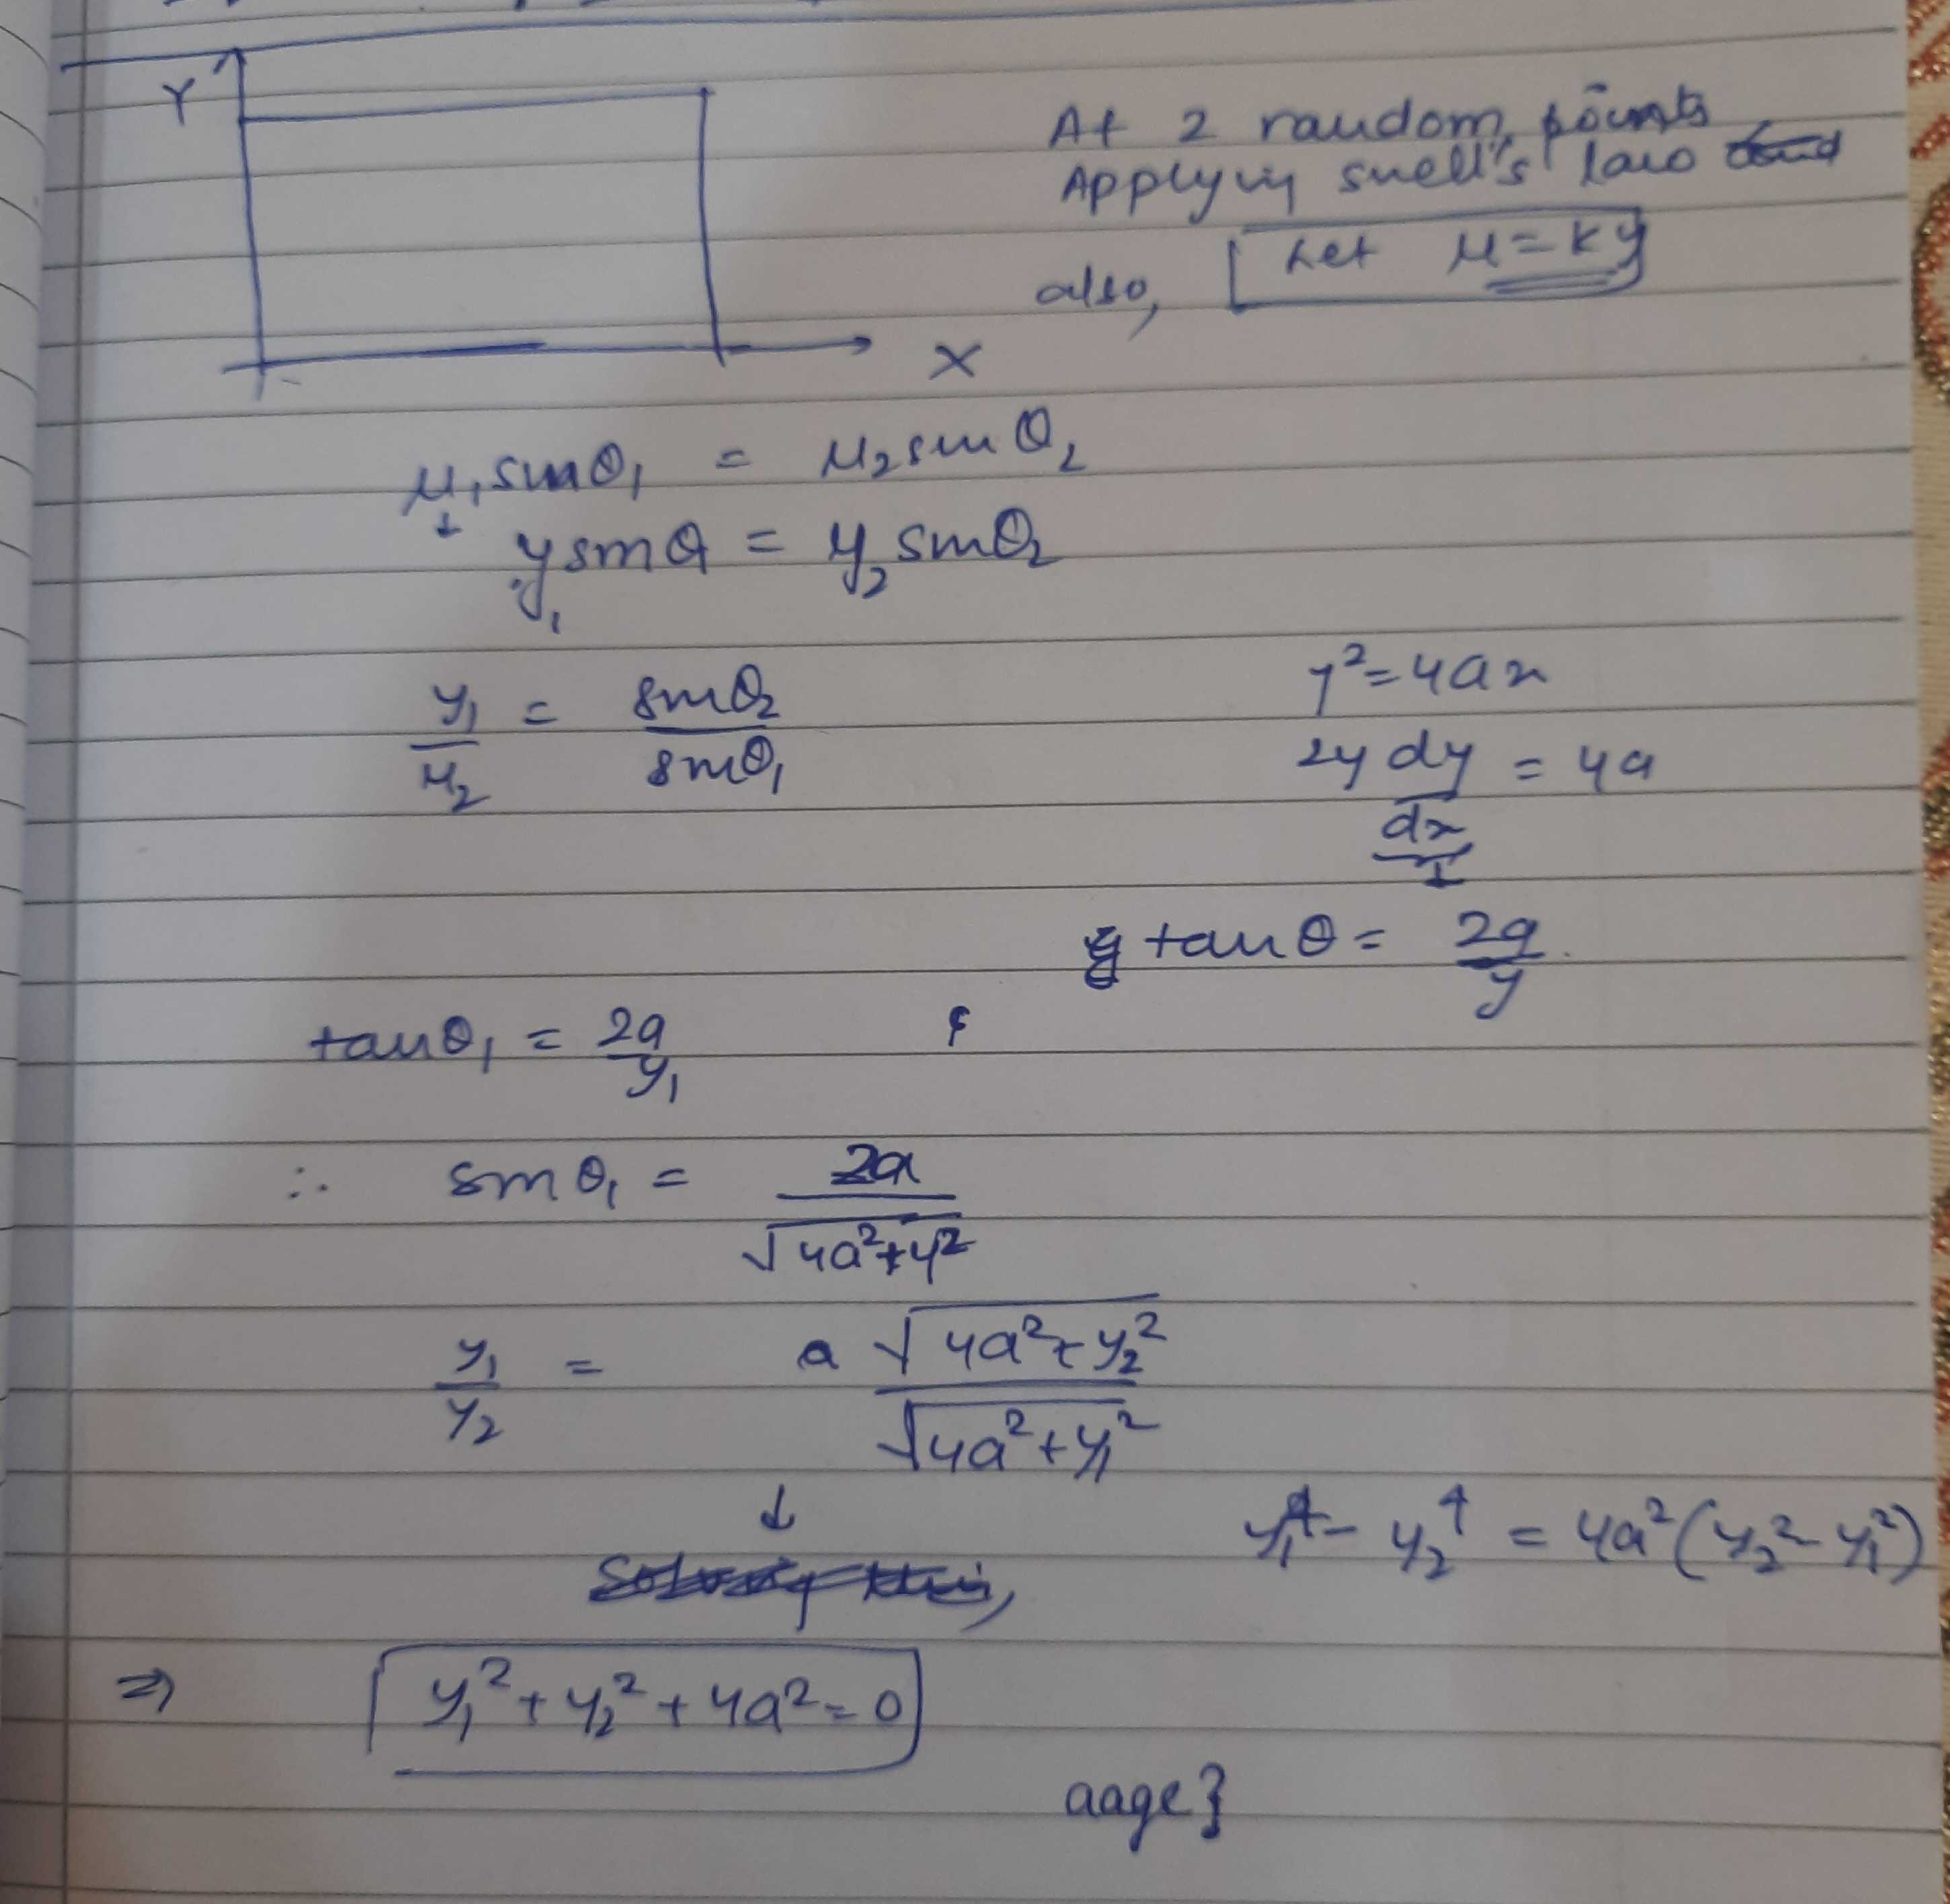 Y
At 2 random points
Applying snell's law
also, Let μ = ky
X
μ₁sinθ₁ = μ₂sinθ₂
y₁sinθ = y₂sinθ₂
y₁/μ₂ = sinθ₂/sinθ₁
y² = 4ax
2y dy/dx = 4a
tanθ = 2a/y
tanθ₁ = 2a/y₁ &
∴ sinθ₁ = 2a/√4a²+y²
y₁/y₂ = a √4a²+y₂²/√4a²+y₁²
y₁⁴ - y₂⁴ = 4a²(y₂² - y₁²)
Solving this,
⇒ y₁² + y₂² + 4a² = 0
aage}